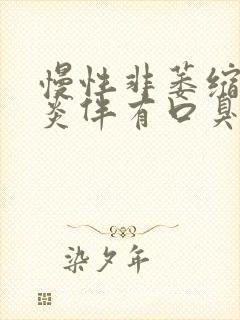 慢性非萎缩
炎伴有口臭
染夕年